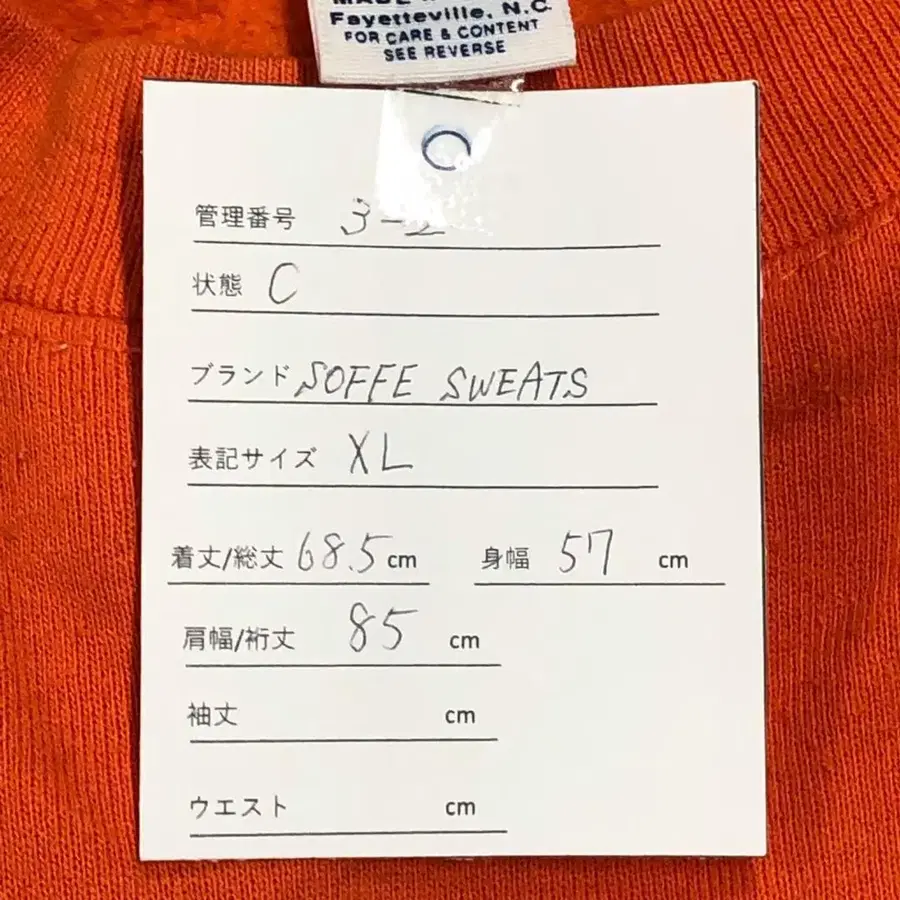 Fayetteville, N.C
FOR CARE & CONTENT
SEE REVERSE
管理番号 3-2
状態 C
ブランド SOFFE SWEATS
表記サイズ XL
着丈/総丈 68.5 cm 身幅 57 cm
肩幅/裄丈 85 cm
袖丈 cm
ウエスト cm